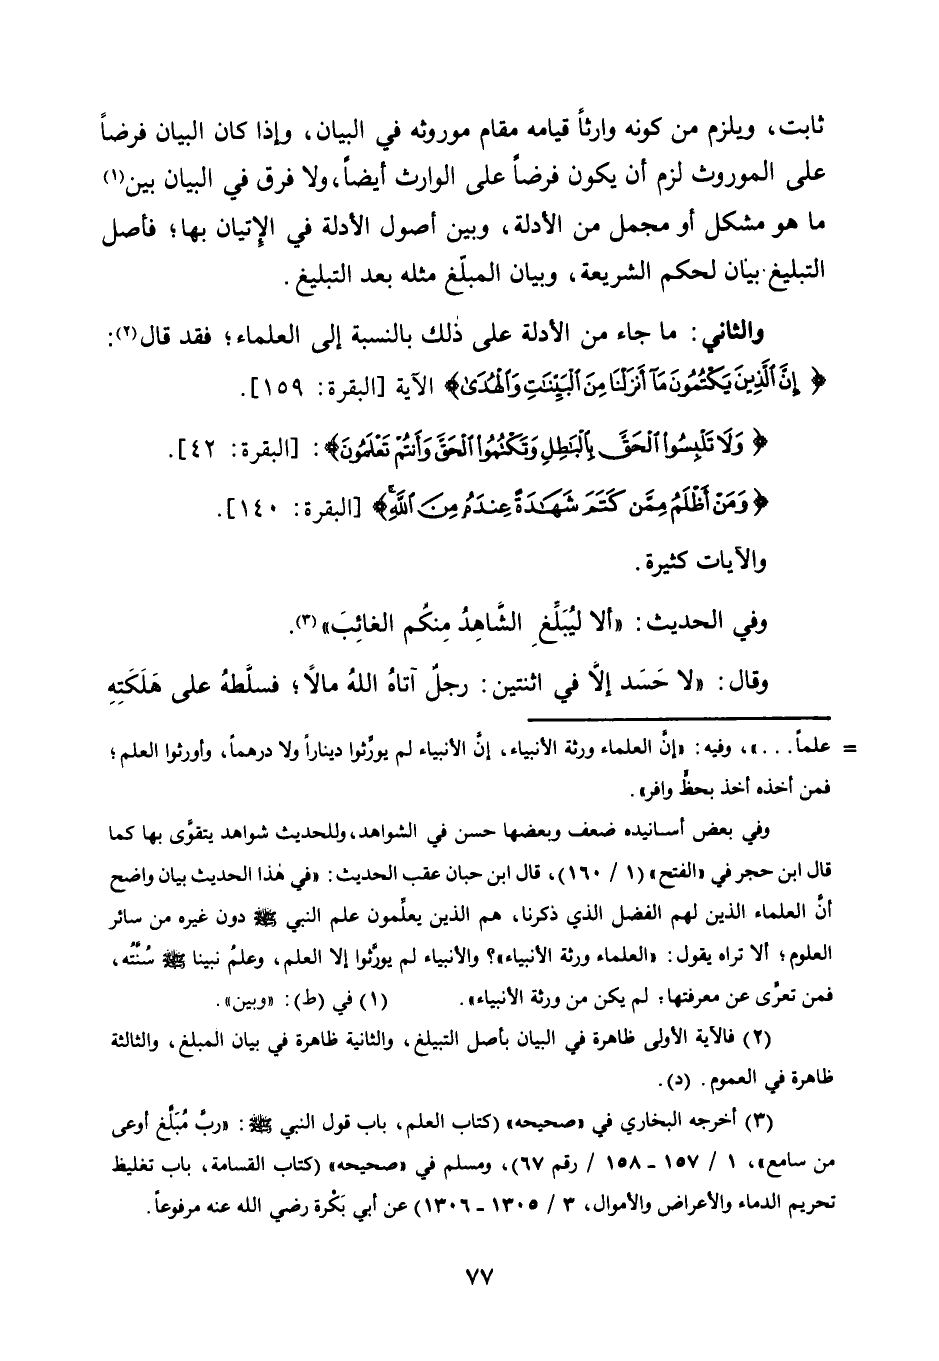 ثابت، ويلزم من كونه وارثاً قيامه مقام موروثه في البيان، وإذا كان البيان فرضاً
على الموروث لزم أن يكون فرضاً على الوارث أيضاً، ولا فرق في البيان بين(١)
ما هو مشكل أو مجمل من الأدلة، وبين أصول الأدلة في الإتيان بها؛ فأصل
التبليغ بيان لحكم الشريعة، وبيان المبلّغ مثله بعد التبليغ.
والثاني: ما جاء من الأدلة على ذٰلك بالنسبة إلى العلماء؛ فقد قال(٢):
﴿إِنَّ ٱلَّذِينَ يَكْتُمُونَ مَآ أَنزَلْنَا مِنَ ٱلْبَيِّنَٰتِ وَٱلْهُدَىٰ﴾ الآية [البقرة: ١٥٩].
﴿وَلَا تَلْبِسُوا۟ ٱلْحَقَّ بِٱلْبَٰطِلِ وَتَكْتُمُوا۟ ٱلْحَقَّ وَأَنتُمْ تَعْلَمُونَ﴾: [البقرة: ٤٢].
﴿وَمَنْ أَظْلَمُ مِمَّن كَتَمَ شَهَٰدَةً عِندَهُۥ مِنَ ٱللَّهِ ۗ﴾ [البقرة: ١٤٠].
والآيات كثيرة.
وفي الحديث: «ألا ليُبَلِّغِ الشَّاهِدُ مِنكُم الغائِبَ»(٣).
وقال: «لا حَسَد إلاَّ في اثنتين: رجلٌ آتاهُ اللهُ مالًا؛ فسلَّطهُ على هَلَكَتِهِ
= علماً. . .»، وفيه: «إنَّ العلماء ورثة الأنبياء، إنَّ الأنبياء لم يورِّثوا ديناراً ولا درهماً، وأورثوا العلم؛
فمن أخذه أخذ بحظٍّ وافر».
وفي بعض أسانيده ضعف وبعضها حسن في الشواهد، وللحديث شواهد يتقوَّى بها كما
قال ابن حجر في «الفتح» (١ / ١٦٠)، قال ابن حبان عقب الحديث: «في هٰذا الحديث بيان واضح
أنَّ العلماء الذين لهم الفضل الذي ذكرنا، هم الذين يعلِّمون علم النبي ﷺ دون غيره من سائر
العلوم؛ ألا تراه يقول: «العلماء ورثة الأنبياء»؟ والأنبياء لم يورِّثوا إلا العلم، وعلمُ نبينا ﷺ سُنَّتُه،
فمن تعرَّى عن معرفتها؛ لم يكن من ورثة الأنبياء». (١) في (ط): «وبين».
(٢) فالآية الأولى ظاهرة في البيان بأصل التبيلغ، والثانية ظاهرة في بيان المبلغ، والثالثة
ظاهرة في العموم. (د).
(٣) أخرجه البخاري في «صحيحه» (كتاب العلم، باب قول النبي ﷺ: «ربَّ مُبَلَّغ أوعى
من سامع»، ١ / ١٥٧ ـ ١٥٨ / رقم ٦٧)، ومسلم في «صحيحه» (كتاب القسامة، باب تغليظ
تحريم الدماء والأعراض والأموال، ٣ / ١٣٠٥ ـ ١٣٠٦) عن أبي بَكْرة رضي الله عنه مرفوعاً.
٧٧